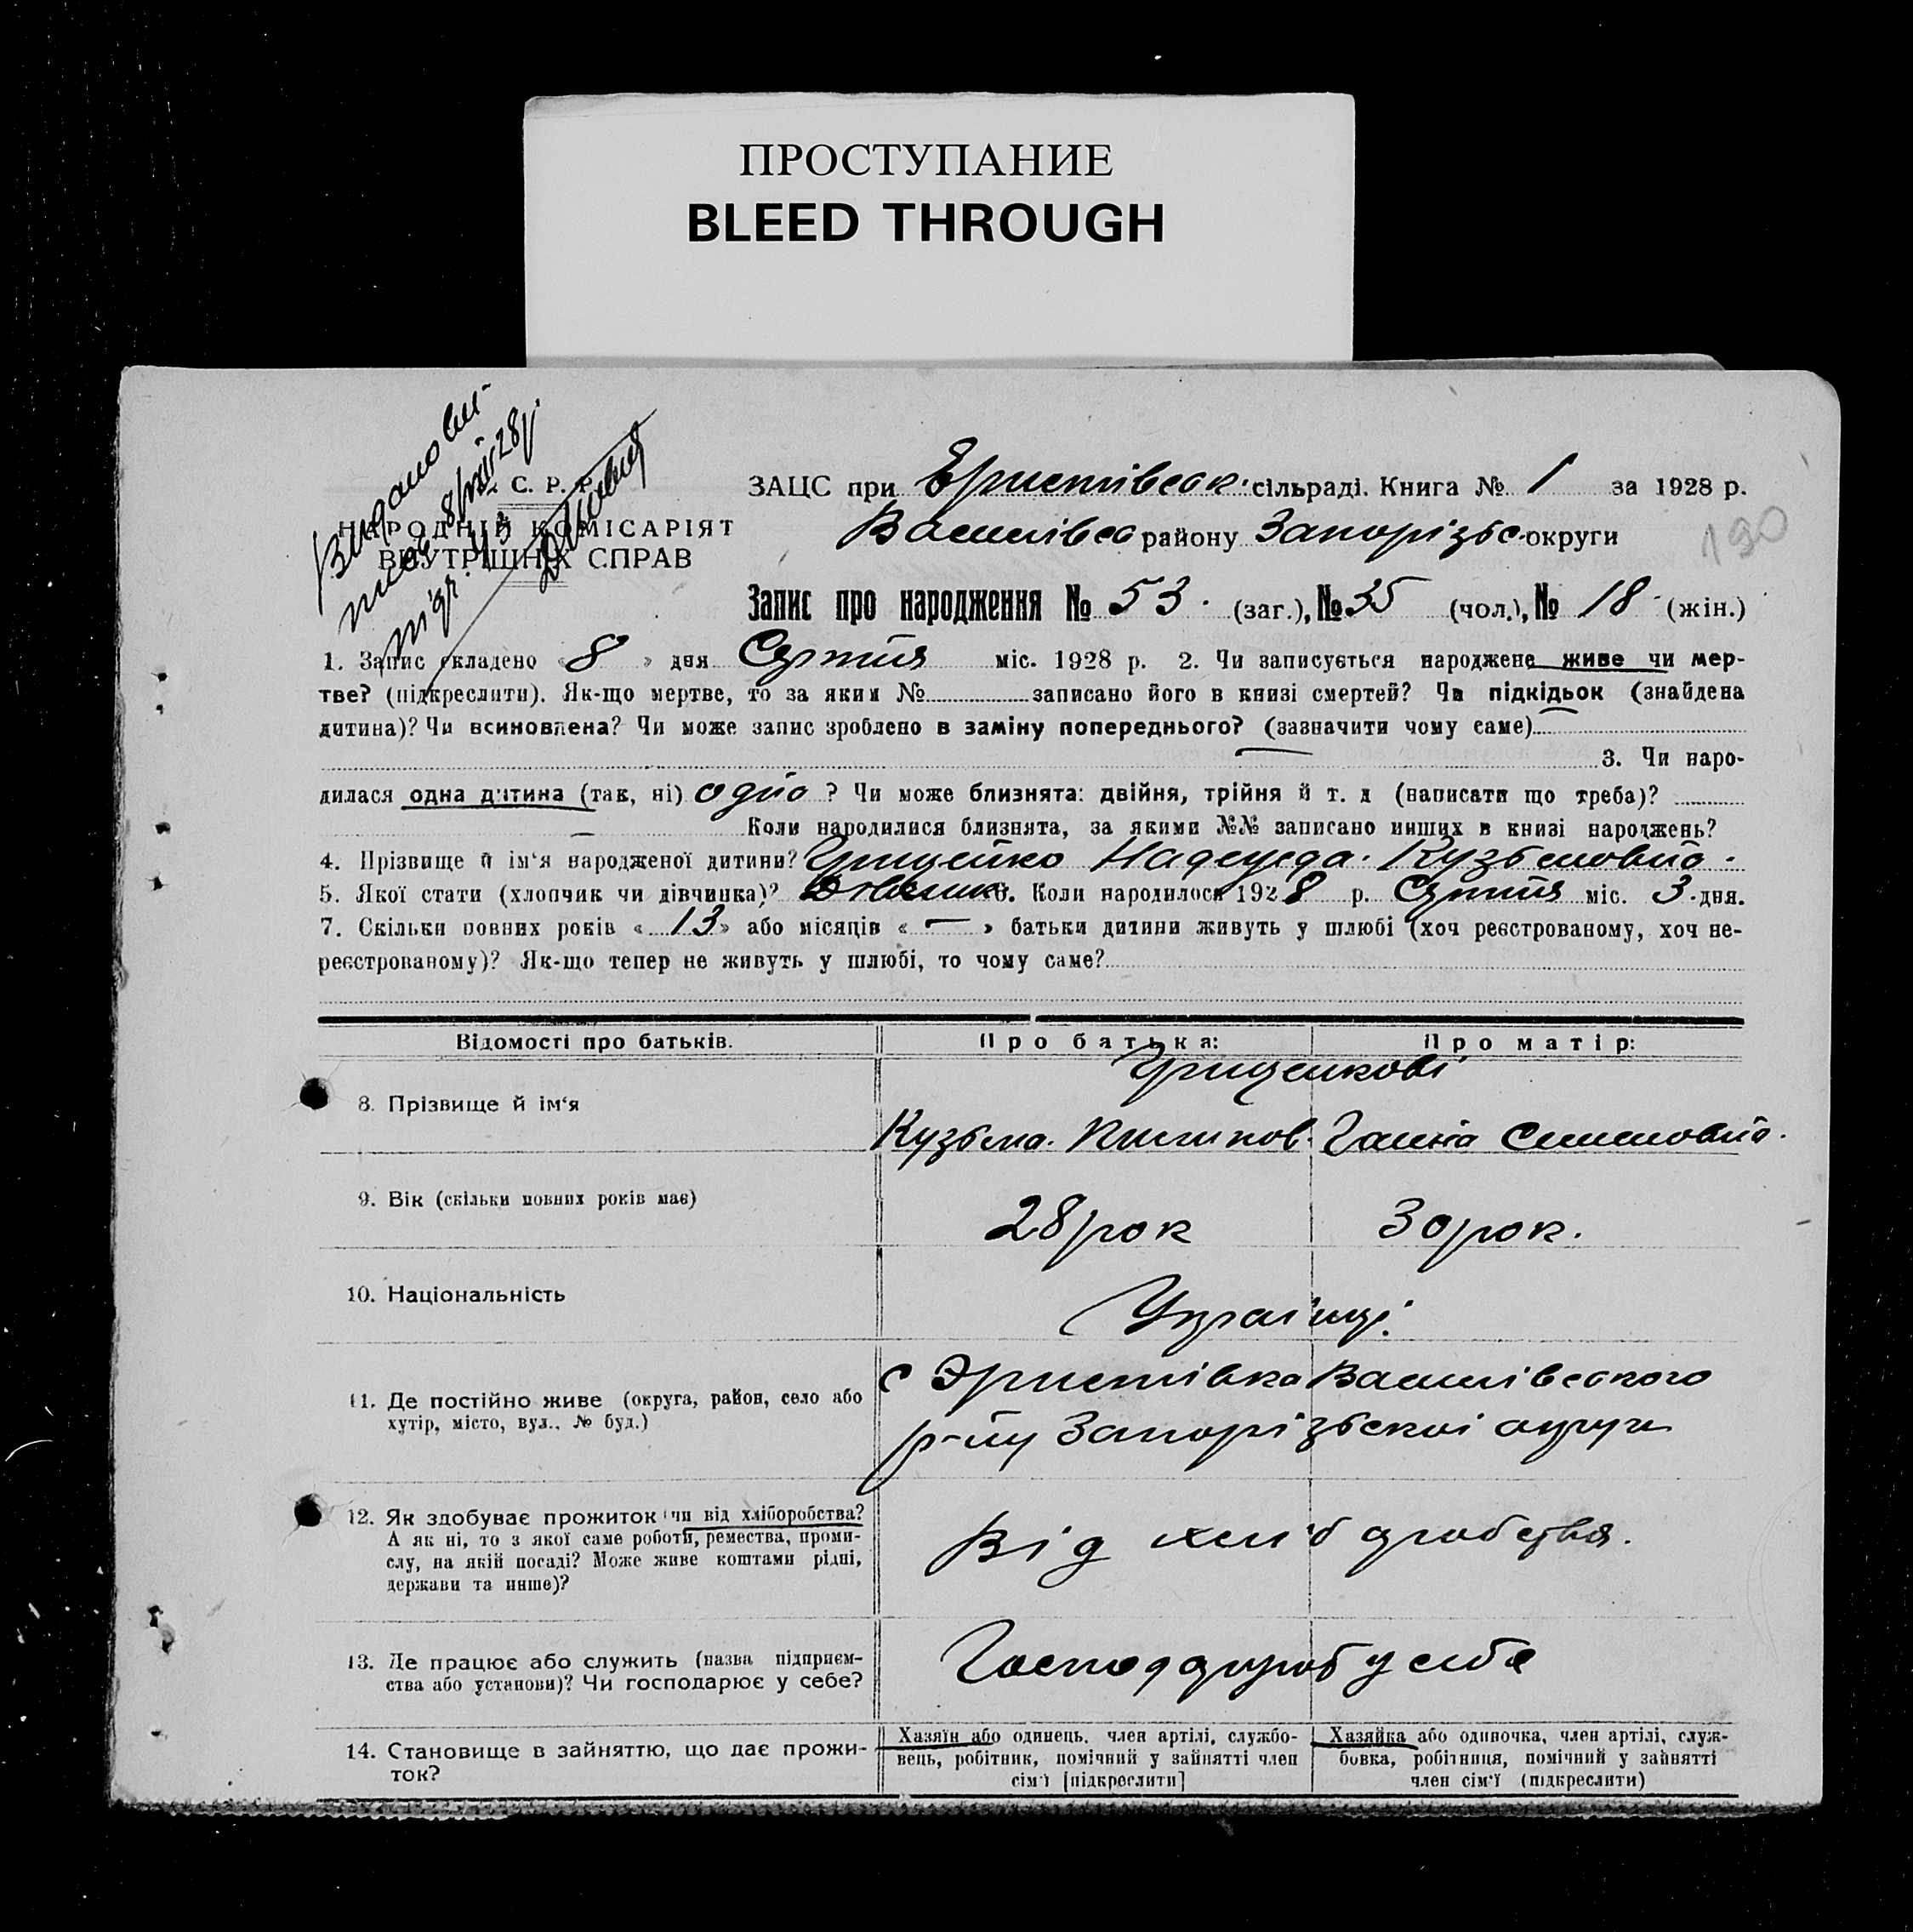 ПРОСТУПАНИЕ
BLEED THROUGH
С. Р. Р.
НАРОДНІЙ КОМІСАРІЯТ
ВНУТРІШНІХ СПРАВ
ЗАЦС при Еристівськ. сільраді. Книга № 1 за 1928 р.
Василівсо району Запорізьс. округи
190
Запис про народження № 53. (заг.), № 35 (чол.), № 18 (жін.)
1. Запис складено «8» дня Серпня міс. 1928 р. 2. Чи записується народжене живе чи мер-
тве? (підкреслити). Як-що мертве, то за яким № записано його в книзі смертей? Чи підкідьок (знайдена
дитина)? Чи всиновлена? Чи може запис зроблено в заміну попереднього? (зазначити чому саме)
3. Чи наро-
дилася одна дитина (так, ні) одна ? Чи може близнята: двійня, трійня й т. д (написати що треба)?
Коли народилися близнята, за якими №№ записано инших в книзі народжень?
4. Прізвище й ім‘я народженої дитини? Гриценко Надежда. Кузьмовна.
5. Якої стати (хлопчик чи дівчинка)? 6. Коли народилося 1928 р. Серпня міс. 3. дня.
7. Скільки повних років « 13 » або місяців « — » батьки дитини живуть у шлюбі (хоч реєстрованому, хоч не-
реєстрованому)? Як-що тепер не живуть у шлюбі, то чому саме?
Відомості про батьків. Про батька: Про матір:
Гриценкові
8. Прізвище й ім‘я Кузьма. Ганна Семеновна.
9. Вік (скільки повних років має) 28 рок 30 рок.
10. Національність Українці.
11. Де постійно живе (округа, район, село або
хутір, місто, вул., № буд.)
с Эристівка Василівського
р-ну Запорізської округи
12. Як здобуває прожиток (чи від хліборобства?
А як ні, то з якої саме роботи, ремества, проми-
слу, на якій посаді? Може живе коштами рідні,
держави та инше)?
Від хліборобства.
13. Де працює або служить (назва підприєм-
ства або установи)? Чи господарює у себе?
у себе
14. Становище в зайняттю, що дає прожи-
ток?
Хазяїн або одинець, член артілі, службо-
вець, робітник, помічний у зайнятті член
сім‘ї [підкреслити]
Хазяйка або одиночка, член артілі, служ-
бовка, робітниця, помічний у зайнятті
член сім‘ї (підкреслити)